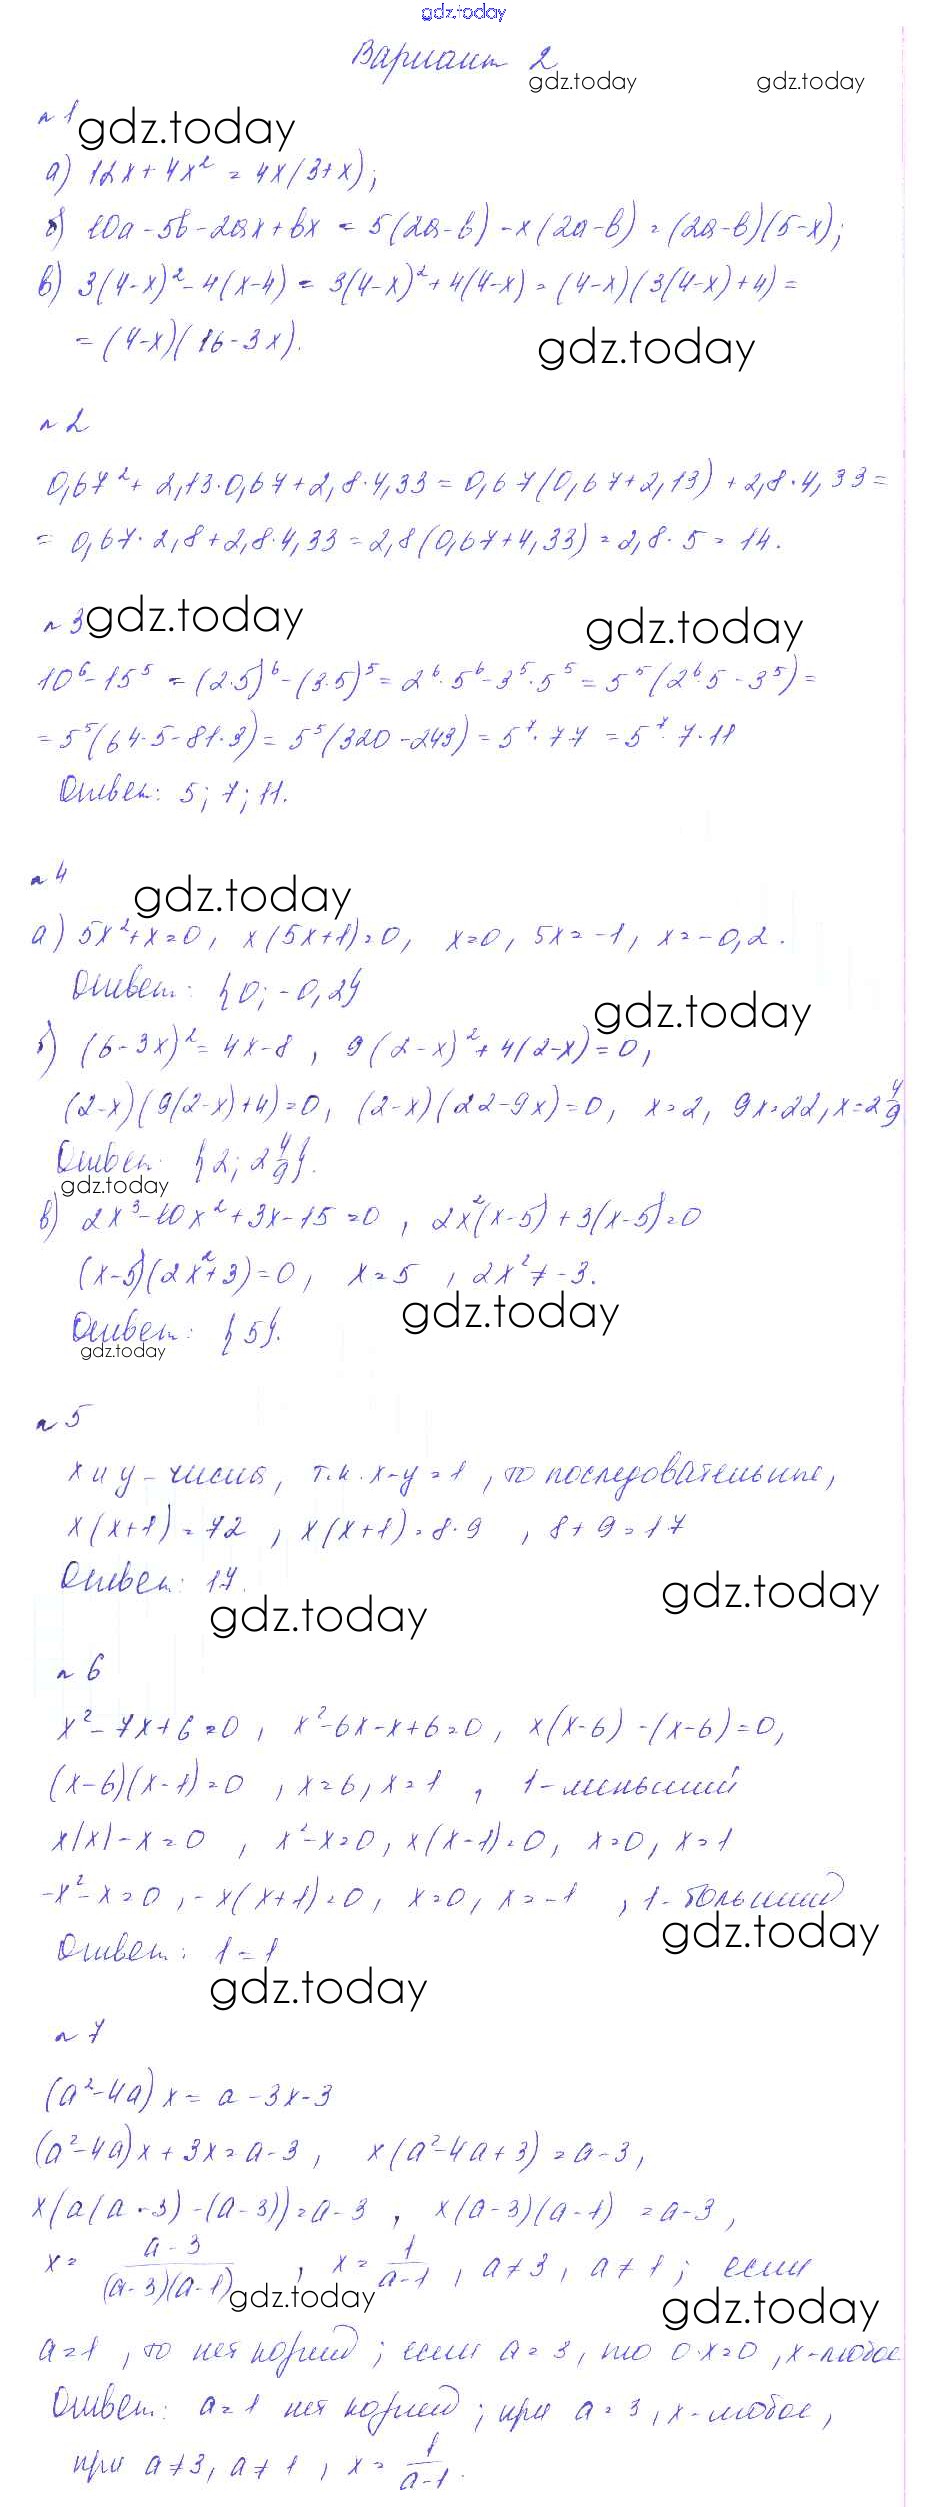 gdz.today
Вариант 2
gdz.today gdz.today
n 1 gdz.today
а) 12x + 4x² = 4x(3+x);
б) 10a - 5b - 2ax + bx = 5(2a-b) - x(2a-b) = (2a-b)(5-x);
в) 3(4-x)² - 4(x-4) = 3(4-x)² + 4(4-x) = (4-x)(3(4-x)+4) =
= (4-x)(16-3x).
gdz.today
n 2
0,67² + 2,13·0,67 + 2,8·4,33 = 0,67(0,67+2,13) + 2,8·4,33 =
= 0,67·2,8 + 2,8·4,33 = 2,8(0,67+4,33) = 2,8·5 = 14.
n 3 gdz.today gdz.today
10⁶ - 15⁵ = (2·5)⁶ - (3·5)⁵ = 2⁶·5⁶ - 3⁵·5⁵ = 5⁵(2⁶·5 - 3⁵) =
= 5⁵(64·5 - 81·3) = 5⁵(320 - 243) = 5⁷·77 = 5⁷·7·11
Ответ: 5; 7; 11.
n 4
gdz.today
а) 5x² + x = 0, x(5x+1) = 0, x = 0, 5x = -1, x = -0,2.
Ответ: {0; -0,2}
gdz.today
б) (6-3x)² = 4x-8, 9(2-x)² + 4(2-x) = 0,
(2-x)(9(2-x)+4) = 0, (2-x)(22-9x) = 0, x = 2, 9x = 22, x = 2 4/9
Ответ: {2; 2 4/9}.
gdz.today
в) 2x³ - 10x² + 3x - 15 = 0, 2x²(x-5) + 3(x-5) = 0
(x-5)(2x²+3) = 0, x = 5, 2x² ≠ -3.
gdz.today
Ответ: {5}.
gdz.today
n 5
x и y - числа, т.к. x-y = 1, то последовательные,
x(x+1) = 72, x(x+1) = 8·9, 8+9 = 17
Ответ: 17.
gdz.today
gdz.today
n 6
x² - 7x + 6 = 0, x² - 6x - x + 6 = 0, x(x-6) - (x-6) = 0,
(x-6)(x-1) = 0, x = 6, x = 1, 1 - меньший
x|x| - x = 0, x² - x = 0, x(x-1) = 0, x = 0, x = 1
-x² - x = 0, -x(x+1) = 0, x = 0, x = -1, 1 - больший
gdz.today
Ответ: 1 = 1
gdz.today
n 7
(a²-4a)x = a - 3x - 3
(a²-4a)x + 3x = a-3, x(a²-4a+3) = a-3,
x(a(a-3) - (a-3)) = a-3, x(a-3)(a-1) = a-3,
x = (a-3)/((a-3)(a-1)), x = 1/(a-1), a ≠ 3, a ≠ 1; если
gdz.today gdz.today
a = 1, то нет корней; если a = 3, то 0·x = 0, x - любое
Ответ: a = 1 нет корней; при a = 3, x - любое,
при a ≠ 3, a ≠ 1, x = 1/(a-1).